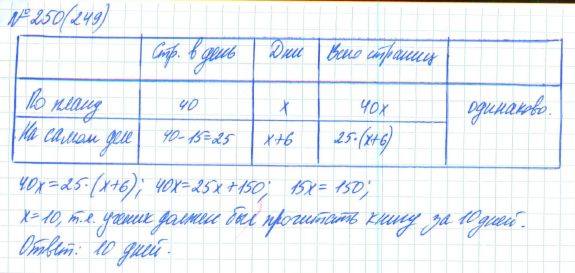 № 250(249)
Стр. в день Дни Всего страниц
По плану 40 x 40x одинаково.
На самом деле 40-15=25 x+6 25·(x+6)
40x=25·(x+6); 40x=25x+150; 15x=150;
x=10, т.е. ученик должен был прочитать книгу за 10 дней.
Ответ: 10 дней.